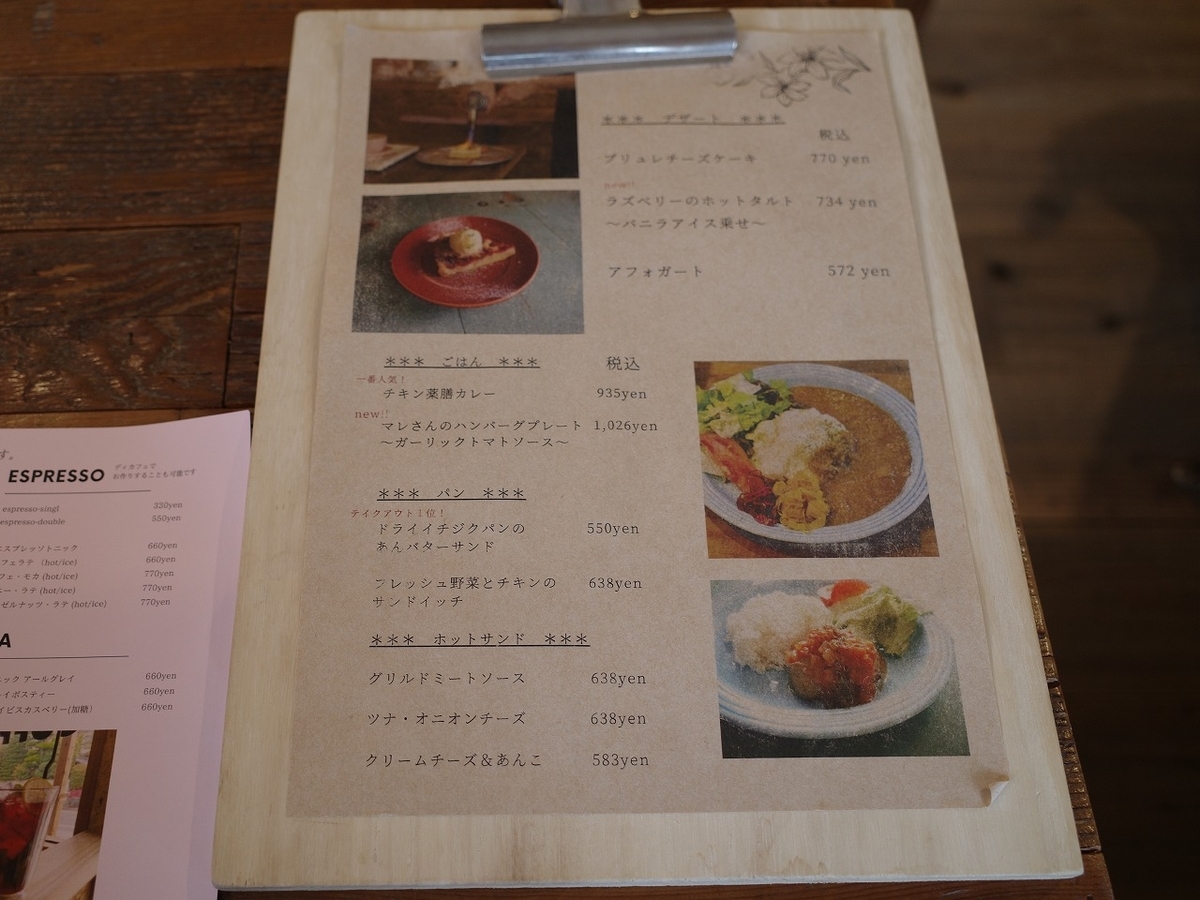 *** デザート ***
税込
ブリュレチーズケーキ 770 yen
new!!
ラズベリーのホットタルト 734 yen
～バニラアイス乗せ～
アフォガート 572 yen
*** ごはん *** 税込
一番人気！
チキン薬膳カレー 935yen
new!!
マレさんのハンバーグプレート 1,026yen
～ガーリックトマトソース～
*** パン ***
テイクアウト1位！
ドライイチジクパンの 550yen
あんバターサンド
フレッシュ野菜とチキンの 638yen
サンドイッチ
*** ホットサンド ***
グリルドミートソース 638yen
ツナ・オニオンチーズ 638yen
クリームチーズ＆あんこ 583yen
す。
ESPRESSO
ディカフェで
お作りすることも可能です
espresso-singl 330yen
espresso-double 550yen
エスプレッソトニック 660yen
フェラテ (hot/ice) 660yen
フェ・モカ (hot/ice) 770yen
ー・ラテ (hot/ice) 770yen
ゼルナッツ・ラテ (hot/ice) 770yen
A
ック アールグレイ 660yen
イボスティー 660yen
イビスカスベリー(加糖) 660yen